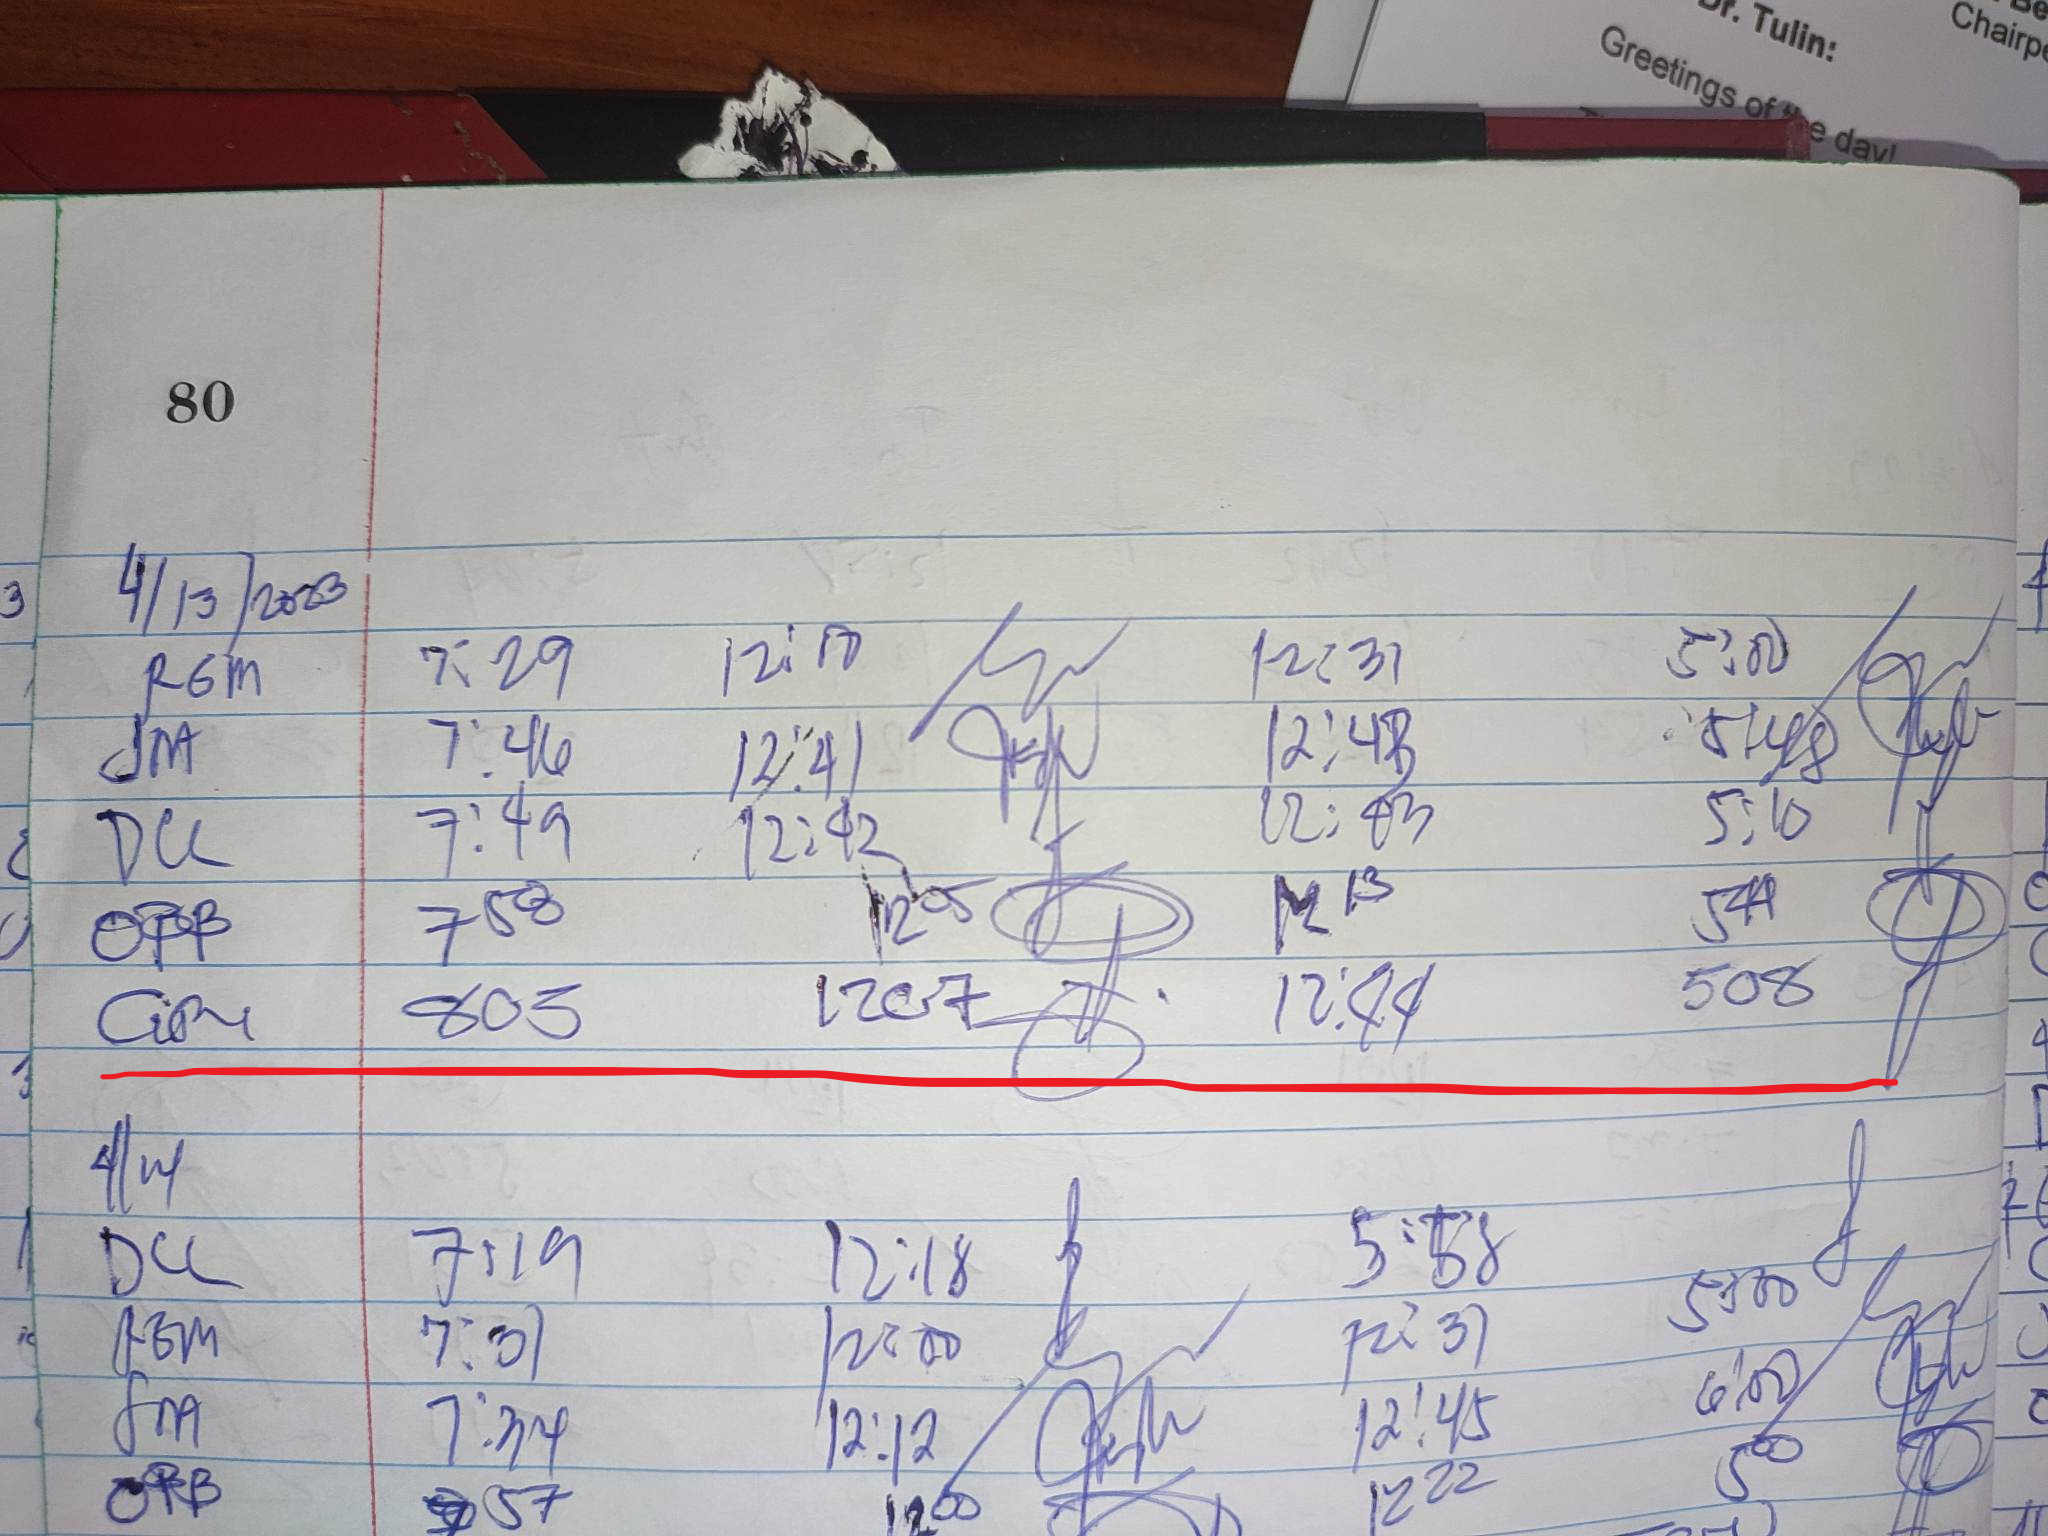 Dr. Tulin:
Chairpe
Greetings of the day!
80
4/13/2023
RGM 7:29 12:10 12:31 5:00
JMA 7:46 12:41 12:43 5:48
DCC 7:49 12:42 12:43 5:10
OPB 7 58 12 05 12 13 5
805 1207 12:44 508
4/14
DCC 7:19 12:18 5:58
RGM 7:31 12:00 12:31 5:00
JMA 7:34 12:12 12:45 6:00
OPB 57 12 00 12 22 5 00